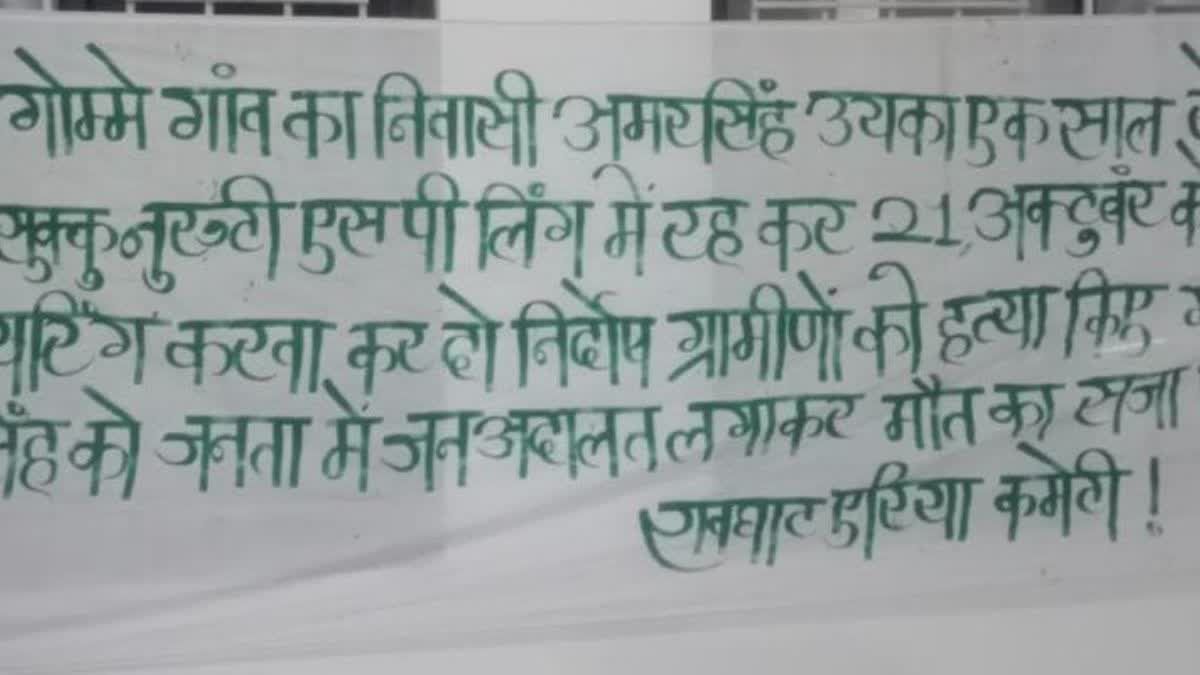 गोम्मे गांव का निवासी अमरसिंह उयका एक साल
नुरूटी एस पी लिंग में रह कर 21 अक्टुबंर
करवा कर दो निर्दोष ग्रामीणों को हत्या किए
को जनता में जन अदालत लगाकर मौत का सजा
रावघाट एरिया कमेटी !